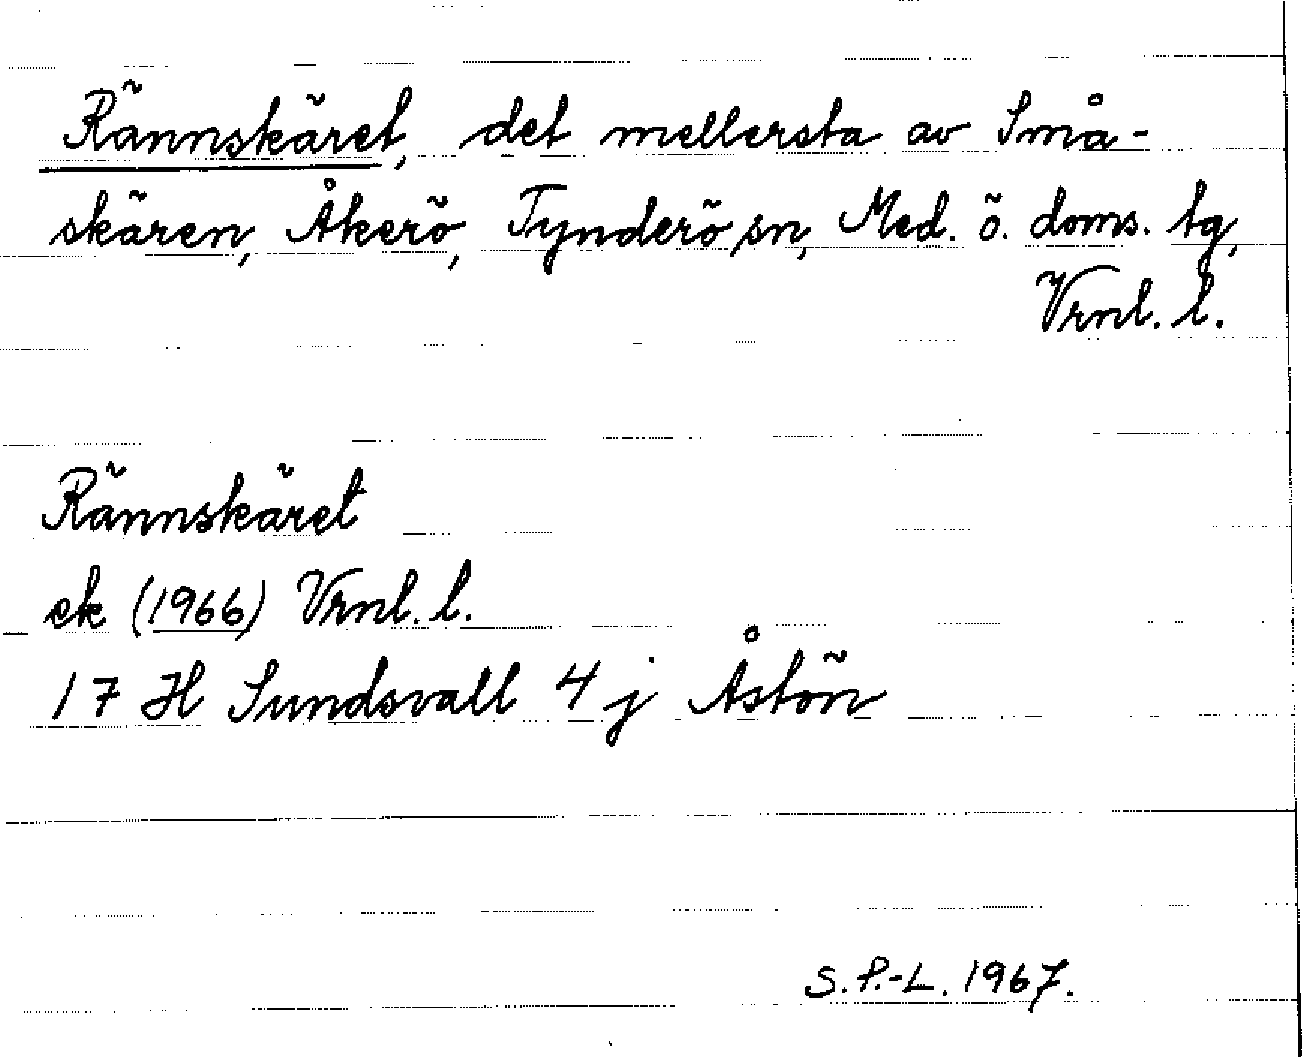 Rännskäret, det mellersta av Små-
skären, Åkerö, Tynderö sn, Med. ö. doms. tg,
Vrnl. l.
Rännskäret
ek (1966) Vrnl. l.
17 H Sundsvall 4 j Åstön
S. P.-L. 1967.